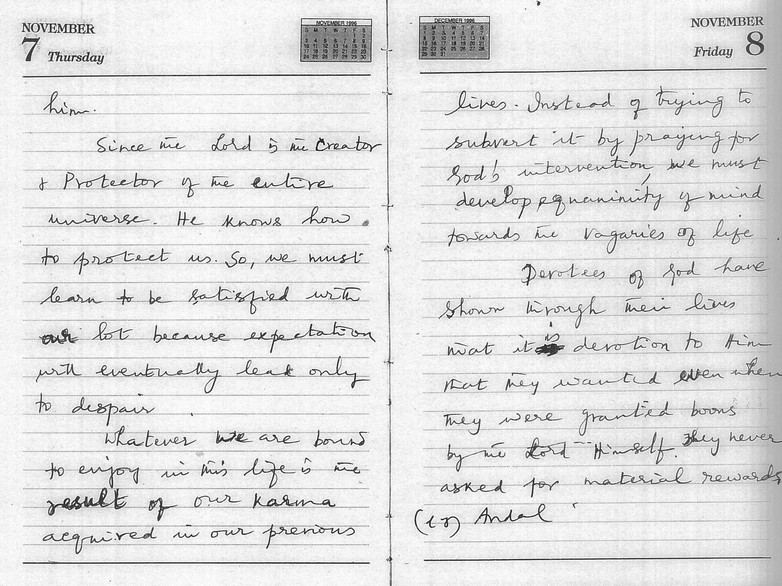 NOVEMBER
7 Thursday
NOVEMBER 1996
him.
Since the Lord is the Creator
& Protector of the entire
universe. He knows how
to protect us. So, we must
learn to be satisfied with
our lot because expectation
will eventually lead only
to despair
Whatever we are bound
to enjoy in this life is the
result of our karma
acquired in our previous
DECEMBER 1996
NOVEMBER
Friday 8
lives. Instead of trying to
subvert it by praying for
God's intervention, we must
develop equanimity of mind
towards the vagaries of life
Devotees of God have
shown through their lives
that it is devotion to Him
that they wanted even when
they were granted boons
by the Lord Himself. They never
asked for material rewards
Andal